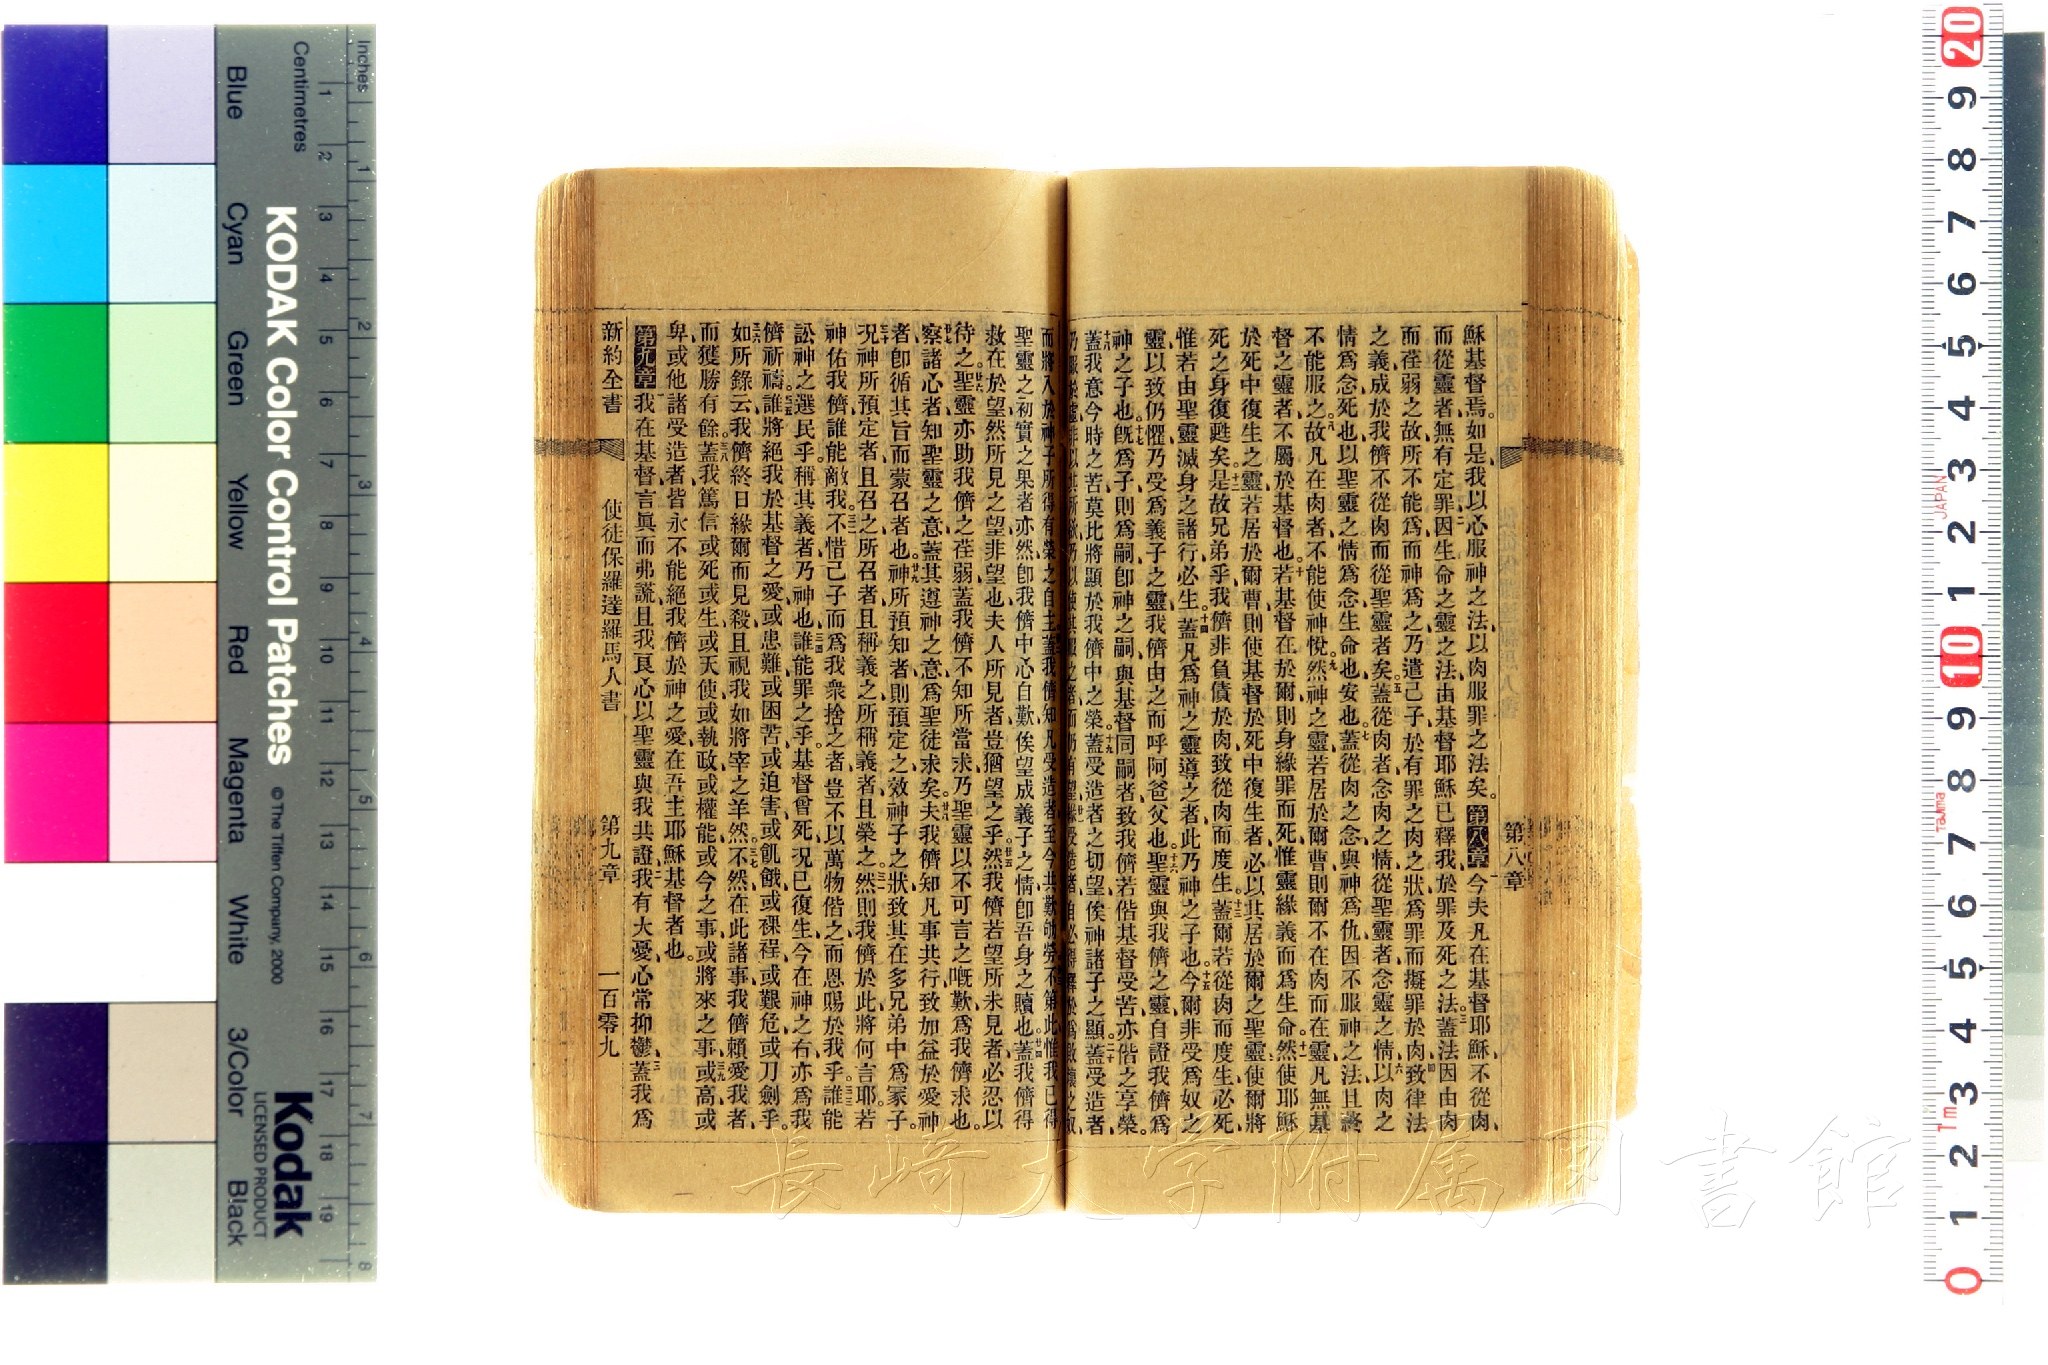 第八章
穌基督焉。如是我以心服神之法、以肉服罪之法矣。第八章今夫凡在基督耶穌不從肉、
而從靈者、無有定罪、因生命之靈之法、由基督耶穌已釋我於罪及死之法、蓋法因由肉
而荏弱之故、所不能爲、而神爲之、乃遣己子於有罪之肉之狀、爲罪而擬罪於肉、致律法
之義、成於我儕不從肉而從聖靈者矣。蓋從肉者念肉之情、從聖靈者念靈之情、以肉之
情爲念、死也、以聖靈之情爲念、生命也、安也。蓋從肉之念與神爲仇、因不服神之法、且終
不能服之。故凡在肉者、不能使神悅。然神之靈若居於爾曹、則爾不在肉而在靈、凡無基
督之靈者、不屬於基督也。若基督在於爾、則身緣罪而死、惟靈緣義而爲生命。然使耶穌
於死中復生之靈、若居於爾曹、則使基督於死中復生者、必以其居於爾之聖靈、使爾將
死之身復甦矣。是故兄弟乎、我儕非負債於肉、致從肉而度生。蓋爾若從肉而度生、必死、
惟若由聖靈滅身之諸行、必生。蓋凡爲神之靈導之者、此乃神之子也。今爾非受爲奴之
靈、以致仍懼、乃受爲義子之靈、我儕由之而呼阿爸父也。聖靈與我儕之靈自證我儕爲
神之子也。旣爲子、則爲嗣、卽神之嗣、與基督同嗣者、致我儕若偕基督受苦、亦偕之享榮。
蓋我意今時之苦、莫比將顯於我儕中之榮。蓋受造者之切望、俟神諸子之顯。蓋受造者、
而將入於神子所得有榮之自主、蓋我儕知凡受造者、至今共歎劬勞、不第此、惟我已得
聖靈之初實之果者亦然、卽我儕中心自歎、俟望成義子之情、卽吾身之贖也。蓋我儕得
救在於望、然所見之望、非望也、夫人所見者、豈猶望之乎。然我儕若望所未見者、必忍以
待之。聖靈亦助我儕之荏弱、蓋我儕不知所當求、乃聖靈以不可言之嘅歎、爲我儕求也。
察諸心者知聖靈之意、蓋其遵神之意、爲聖徒求矣。夫我儕知凡事共行、致加益於愛神
者、卽循其旨而蒙召者也。神所預知者、則預定之效神子之狀、致其在多兄弟中爲冢子。
况神所預定者、且召之、所召者、且稱義之、所稱義者、且榮之。然則我儕於此將何言耶、若
神佑我儕、誰能敵我。不惜己子、而爲我衆捨之者、豈不以萬物偕之而恩賜於我乎。誰能
訟神之選民乎、稱其義者、乃神也、誰能罪之乎、基督曾死、况已復生、今在神之右、亦爲我
儕祈禱。誰將絕我於基督之愛、或患難、或困苦、或迫害、或飢餓、或裸裎、或艱危、或刀劍乎。
如所錄云、我儕終日緣爾而見殺、且視我如將宰之羊然。不然、在此諸事、我儕賴愛我者、
而獲勝有餘。蓋我篤信或死、或生、或天使、或執政、或權能、或今之事、或將來之事、或高、或
卑、或他諸受造者、皆永不能絕我儕於神之愛、在吾主耶穌基督者也。
第九章我在基督、言眞而弗謊、且我良心以聖靈與我共證、我有大憂、心常抑鬱、蓋我爲
新約全書 使徒保羅達羅馬人書 第九章 一百零九
Inches
Centimetres
Blue Cyan Green Yellow Red Magenta White 3/Color Black
KODAK Color Control Patches © The Tiffen Company, 2000
Kodak
LICENSED PRODUCT
1 2 3 4 5 6 7 8 9 10 11 12 13 14 15 16 17 18 19
1 2 3 4 5 6 7 8
20 9 8 7 6 5 4 3 2 1 10 9 8 7 6 5 4 3 2 1 0
JAPAN
Tajima
Tm
長崎大学附属図書館